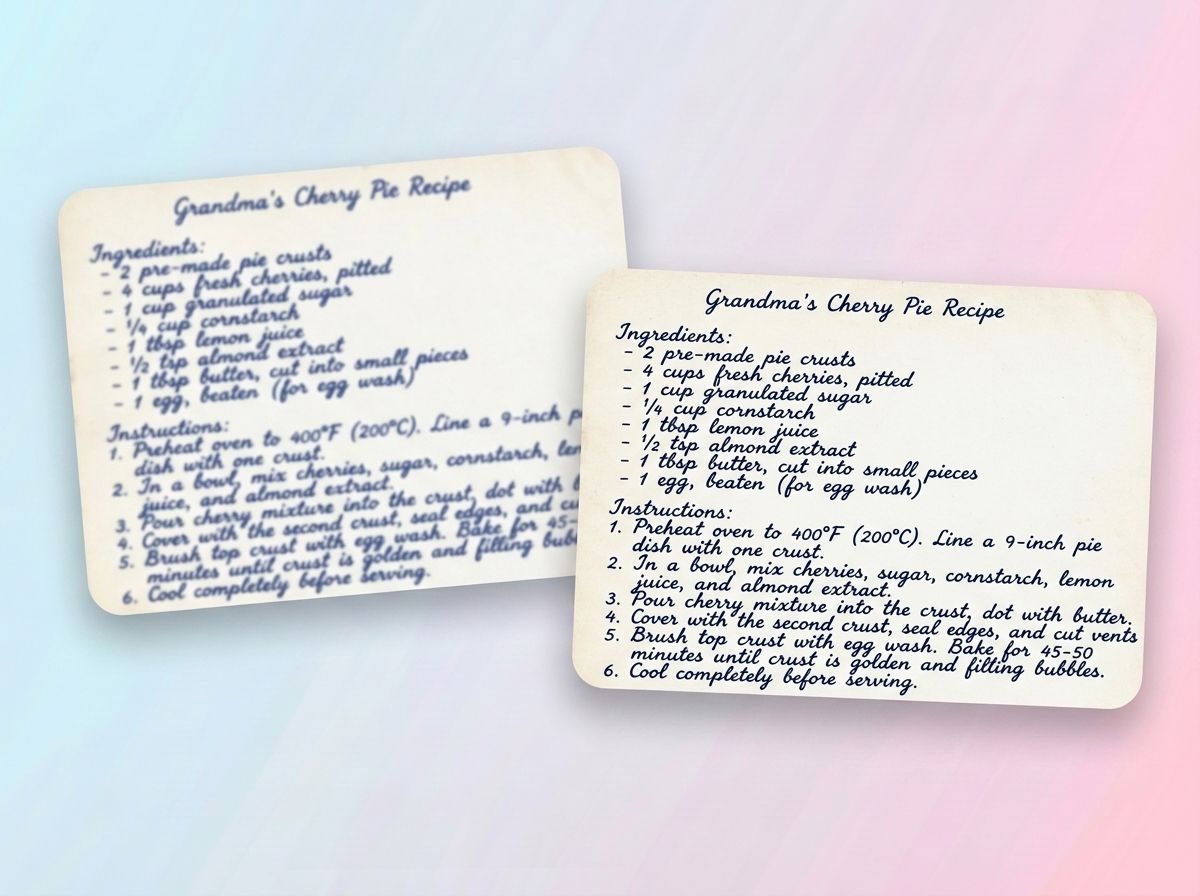 Grandma's Cherry Pie Recipe
Ingredients:
- 2 pre-made pie crusts
- 4 cups fresh cherries, pitted
- 1 cup granulated sugar
- ¼ cup cornstarch
- 1 tbsp lemon juice
- ½ tsp almond extract
- 1 tbsp butter, cut into small pieces
- 1 egg, beaten (for egg wash)
Instructions:
1. Preheat oven to 400°F (200°C). Line a 9-inch
dish with one crust.
2. In a bowl, mix cherries, sugar, cornstarch,
juice, and almond extract.
3. Pour cherry mixture into the crust, dot with
4. Cover with the second crust, seal edges, and
5. Brush top crust with egg wash. Bake for 45-
minutes until crust is golden and filling
6. Cool completely before serving.
Grandma's Cherry Pie Recipe
Ingredients:
- 2 pre-made pie crusts
- 4 cups fresh cherries, pitted
- 1 cup granulated sugar
- ¼ cup cornstarch
- 1 tbsp lemon juice
- ½ tsp almond extract
- 1 tbsp butter, cut into small pieces
- 1 egg, beaten (for egg wash)
Instructions:
1. Preheat oven to 400°F (200°C). Line a 9-inch pie
dish with one crust.
2. In a bowl, mix cherries, sugar, cornstarch, lemon
juice, and almond extract.
3. Pour cherry mixture into the crust, dot with butter.
4. Cover with the second crust, seal edges, and cut vents
5. Brush top crust with egg wash. Bake for 45-50
minutes until crust is golden and filling bubbles.
6. Cool completely before serving.